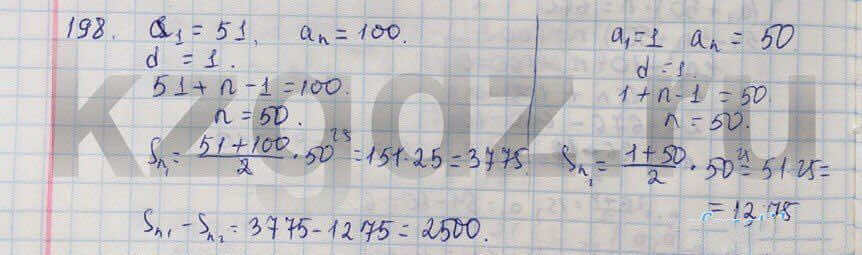 198. a₁ = 51, aₙ = 100.
d = 1.
51 + n - 1 = 100.
n = 50.
Sₙ₁ = (51 + 100)/2 · 50²⁵ = 151 · 25 = 3775.
a₁ = 1 aₙ = 50
d = 1.
1 + n - 1 = 50.
n = 50.
Sₙ₂ = (1 + 50)/2 · 50²⁵ = 51 · 25 =
= 1275
Sₙ₁ - Sₙ₂ = 3775 - 1275 = 2500.
kzgdz.ru